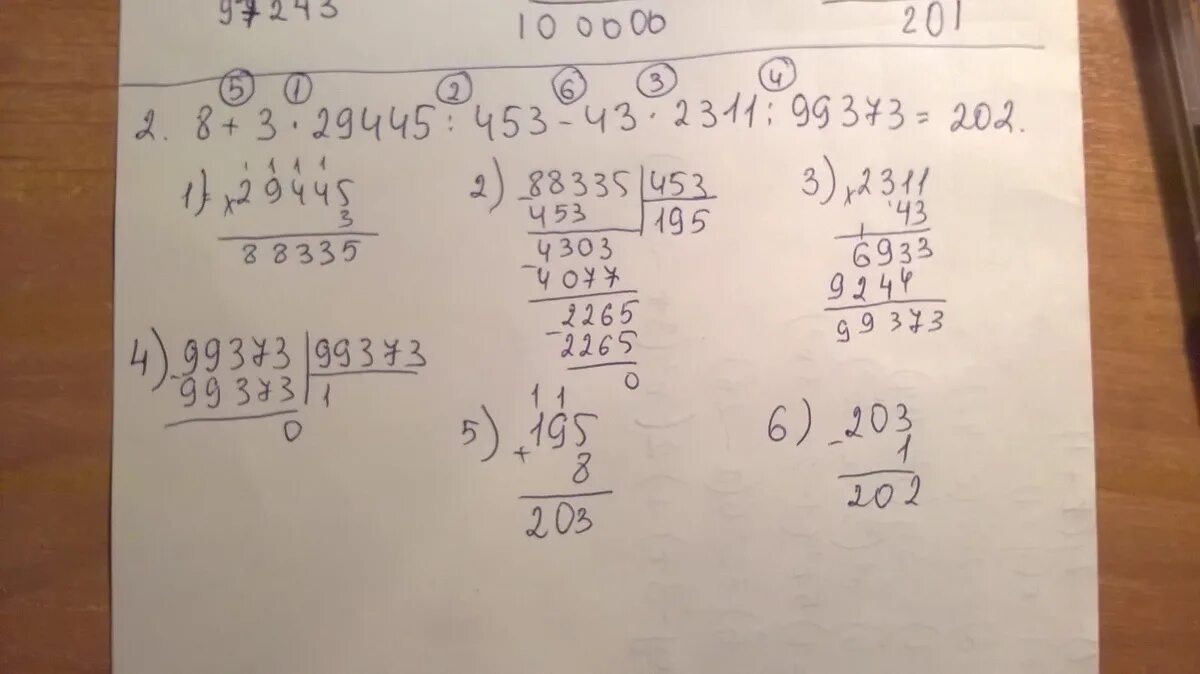 97243
100000
201
5 1 2 6 3 4
2. 8 + 3 · 29445 : 453 - 43 · 2311 : 99373 = 202.
1) 1 1 1 1
× 29445
3
88335
2) - 88335 | 453
453 | 195
4303
- 4077
2265
- 2265
0
3) × 2311
43
1
6933
9244
99373
4) - 99373 | 99373
99373 | 1
0
5) 1 1
195
+ 8
203
6) - 203
1
202